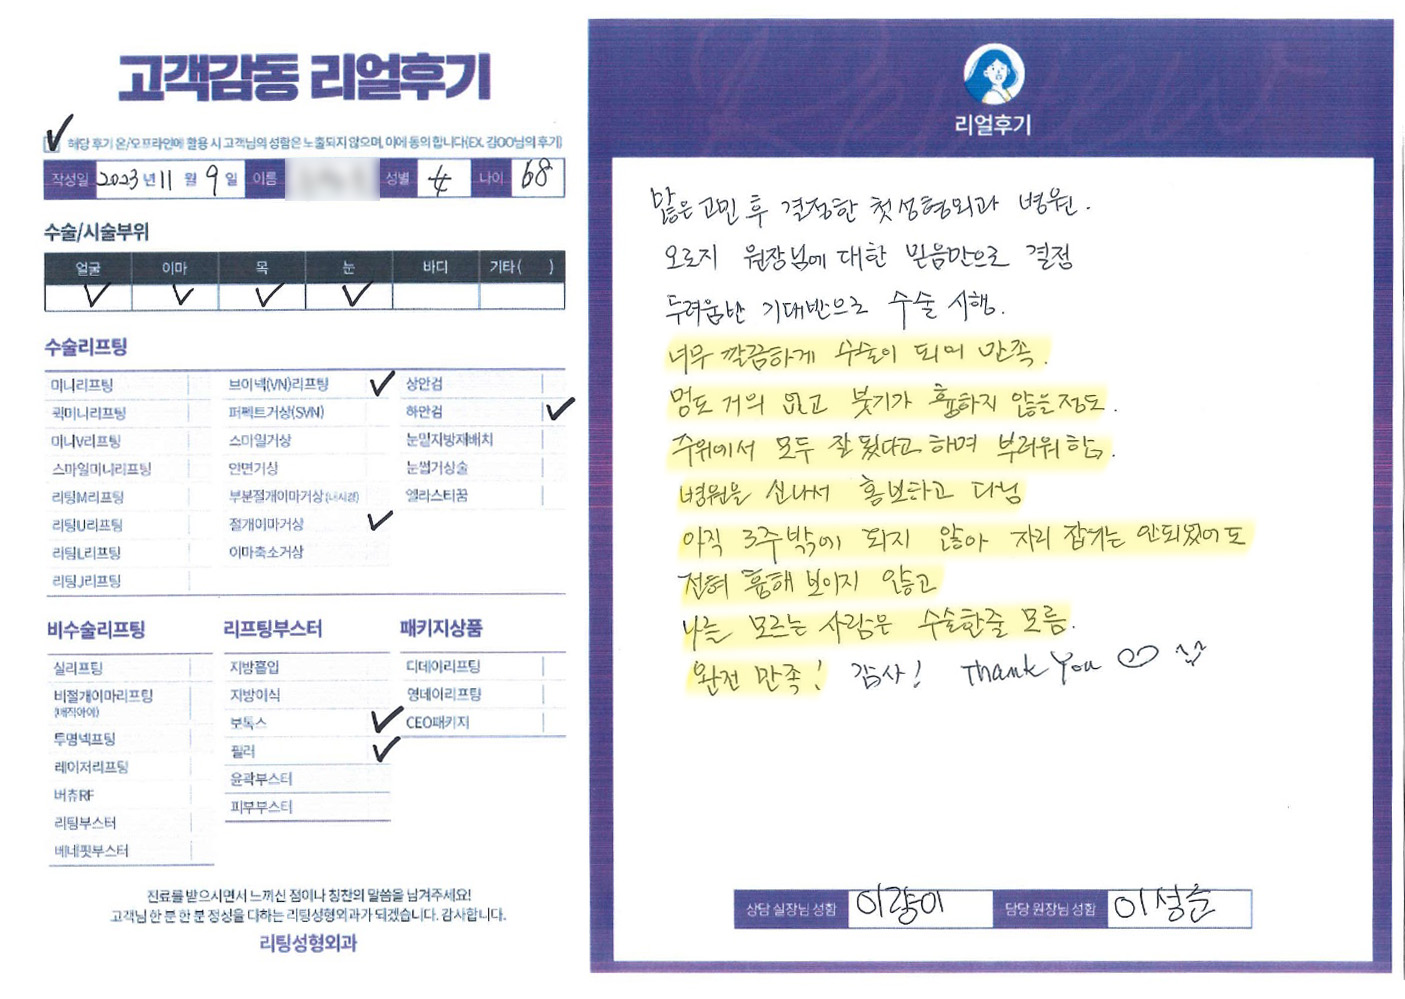 고객감동 리얼후기
해당 후기 온/오프라인에 활용 시 고객님의 성함은 노출되지 않으며, 이에 동의 합니다(EX. 김OO님의 후기)
작성일 2023년 11월 9일 이름 성별 女 나이 68
수술/시술부위
얼굴 이마 목 눈 바디 기타( )
수술리프팅
미니리프팅
퀵미니리프팅
미니V리프팅
스마일미니리프팅
리팅M리프팅
리팅U리프팅
리팅L리프팅
리팅J리프팅
브이넥(VN)리프팅
퍼펙트거상(SVN)
스마일거상
안면거상
부분절개이마거상(내시경)
절개이마거상
이마축소거상
상안검
하안검
눈밑지방재배치
눈썹거상술
엘라스티꿈
비수술리프팅
실리프팅
비절개이마리프팅
(매직아이)
투명넥프팅
레이저리프팅
버츄RF
리팅부스터
베네핏부스터
리프팅부스터
지방흡입
지방이식
보톡스
필러
윤곽부스터
피부부스터
패키지상품
디데이리프팅
영데이리프팅
CEO패키지
진료를 받으시면서 느끼신 점이나 칭찬의 말씀을 남겨주세요!
고객님 한 분 한 분 정성을 다하는 리팅성형외과가 되겠습니다. 감사합니다.
리팅성형외과
리얼후기
많은 고민 후 결정한 첫 성형외과 병원.
오로지 원장님에 대한 믿음만으로 결정
두려움반 기대반으로 수술 시행.
너무 깔끔하게 수술이 되어 만족.
멍도 거의 없고 붓기가 흉하지 않을정도.
주위에서 모두 잘 됬다고 하며 부러워 함.
병원을 신나서 홍보하고 다님
아직 3주밖에 되지 않아 자리 잡기는 안되었어도
전혀 흉해 보이지 않고
나를 모르는 사람은 수술한줄 모름.
완전 만족! 감사! Thank You
상담 실장님 성함 담당 원장님 성함 이성준